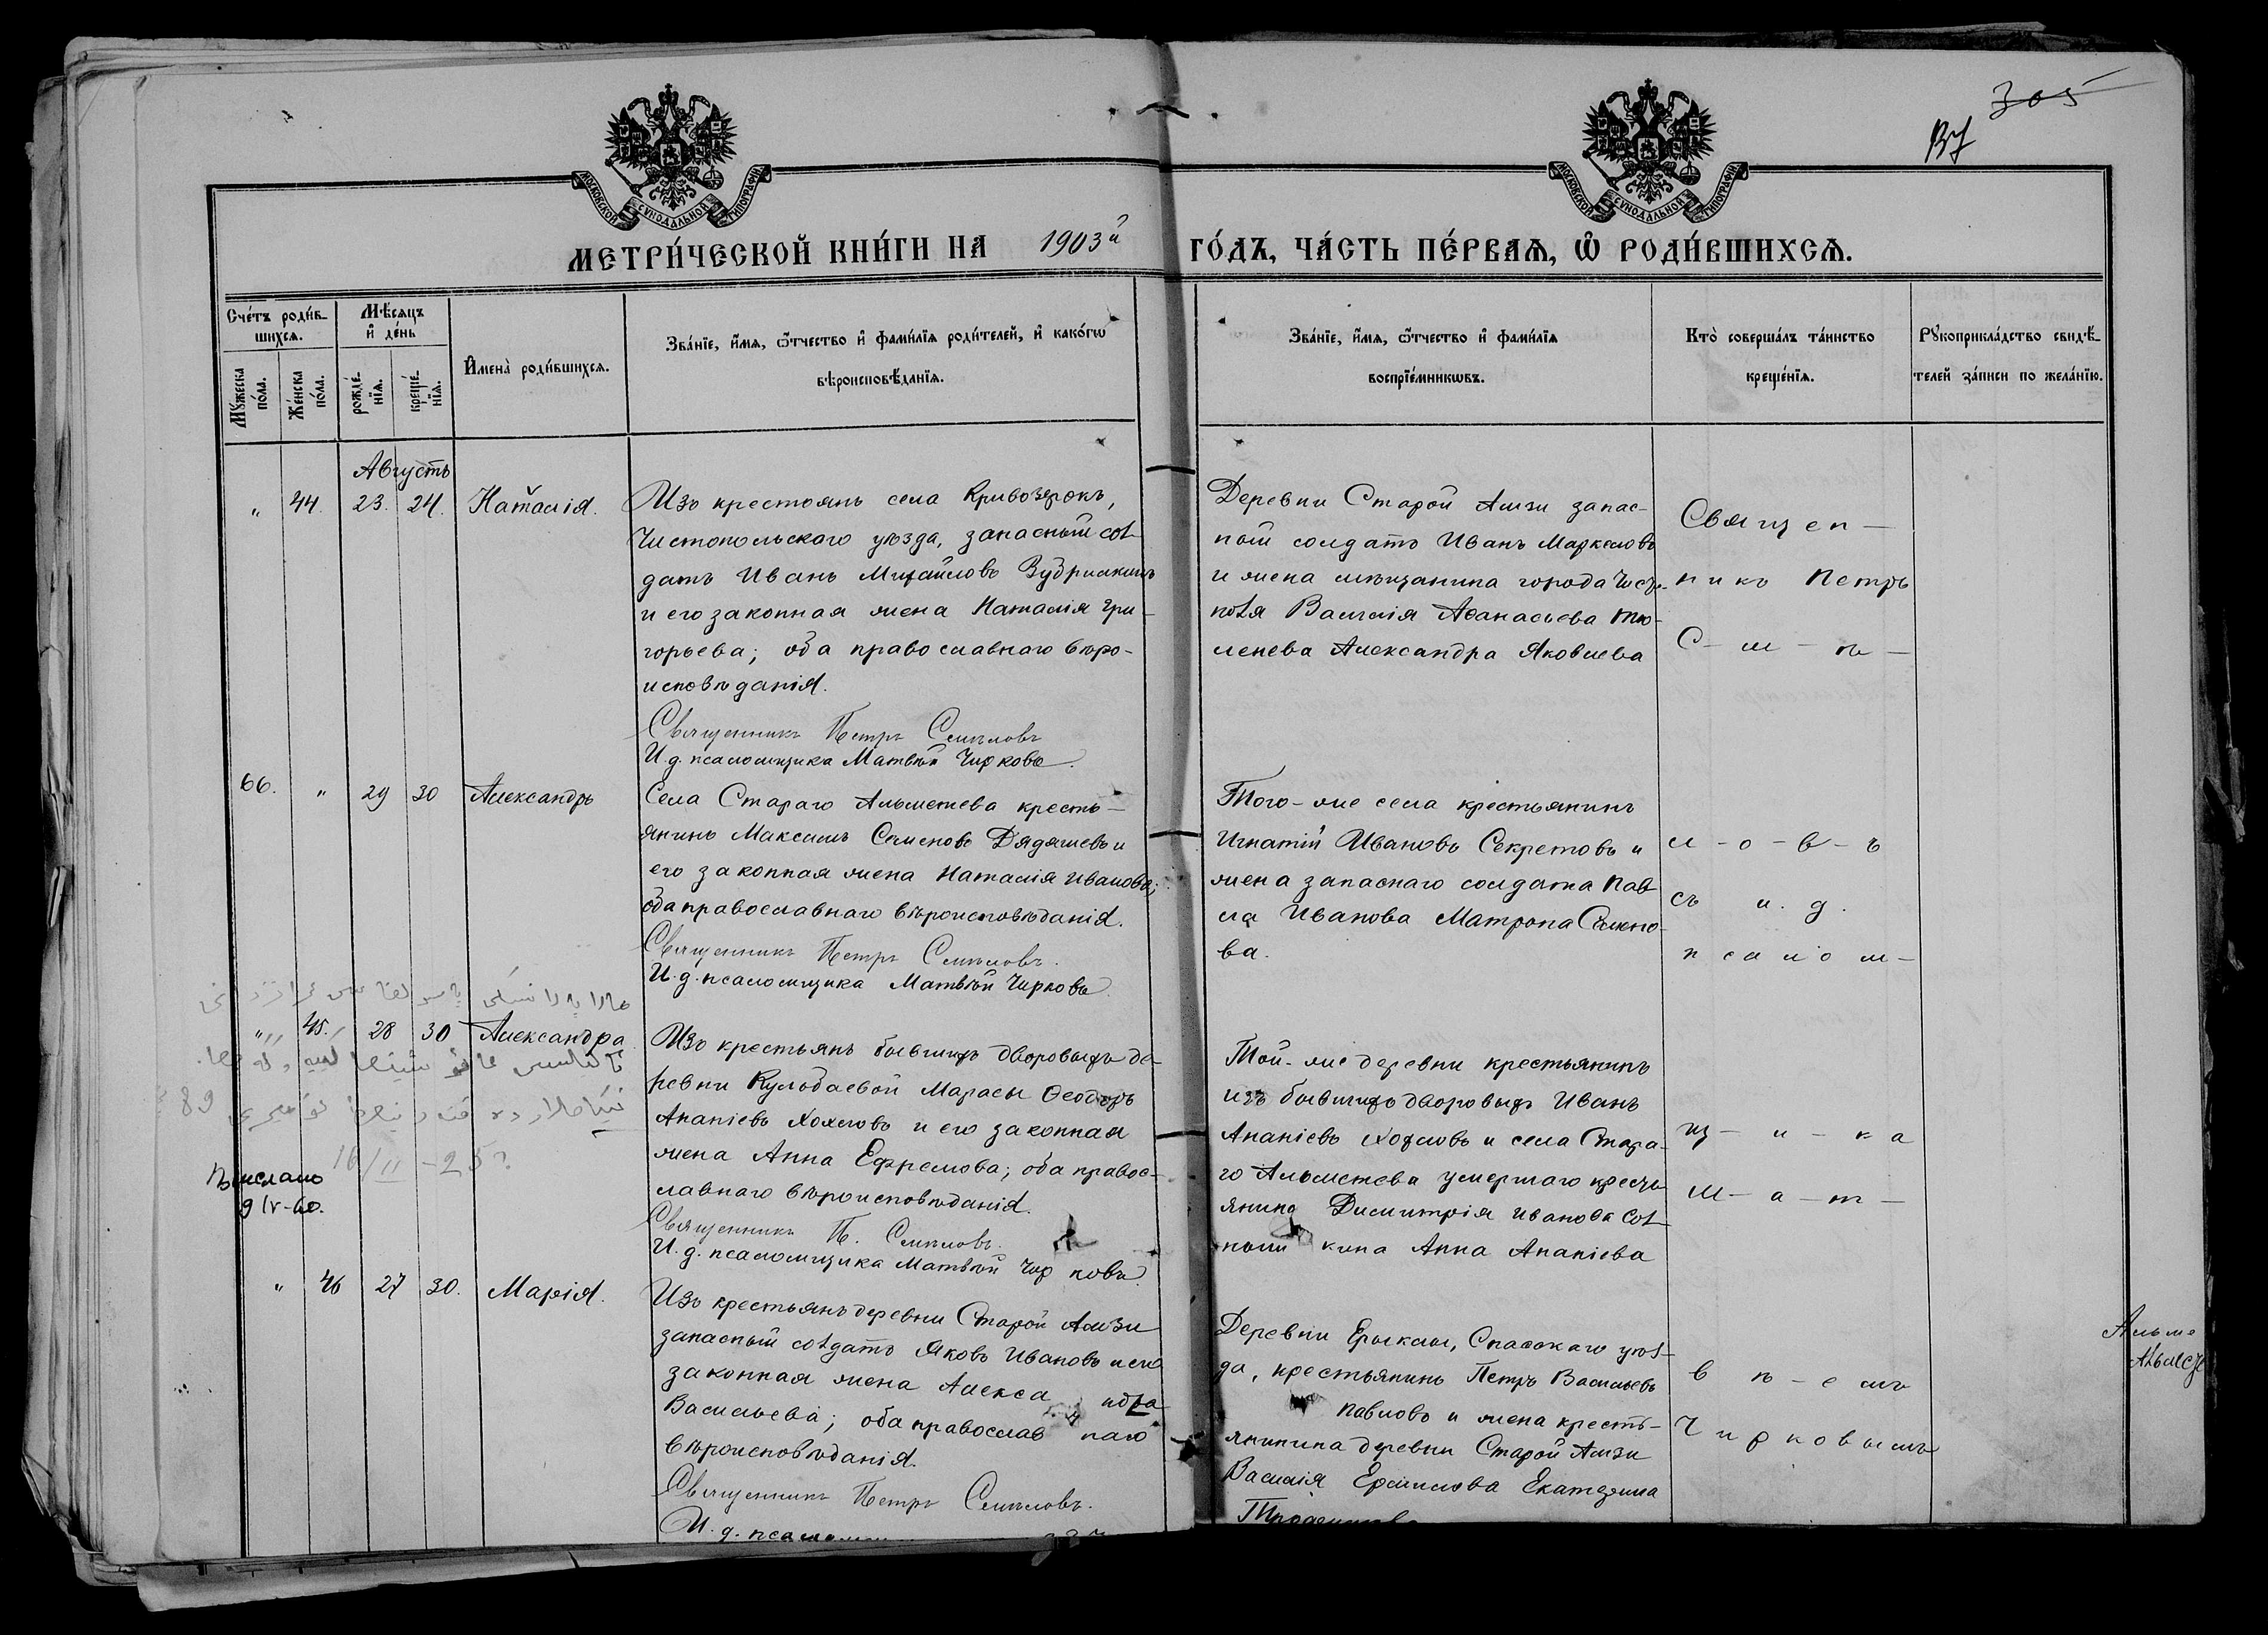 305
МОСКОВСКОЙ СѴНОДАЛЬНОЙ ТИПОГРАФІИ
МОСКОВСКОЙ СѴНОДАЛЬНОЙ ТИПОГРАФІИ
МЕТРИ́ЧЕСКОЙ КНИ́ГИ НА 1903й ГО́ДЪ, ЧА́СТЬ ПЕ́РВАѦ, Ѡ҆ РОДИ́ВШИХСѦ.
Сче́тъ роди́в-
шихсѧ.
Мѹ́жеска по́ла.
Же́нска по́ла.
Мѣ́сѧцъ
и҆ де́нь
рожде́-
нїѧ.
креще́-
нїѧ.
И҆мена̀ роди́вшихсѧ.
Зва́нїе, и҆́мѧ, ѻ҆́тчество и҆ фами́лїѧ роди́телей, и҆ како́гѡ
вѣроисповѣ́данїѧ.
Зва́нїе, и҆́мѧ, ѻ҆́тчество и҆ фами́лїѧ
воспрїе́мникѡвъ.
Кто̀ соверша́лъ та́инство
креще́нїѧ.
Рѹкоприкла́дство свидѣ́-
телей за́писи по жела́нїю.
Августъ
" 44. 23. 24. Наталія.
Изъ крестоянъ села Кривозерокъ,
Чистопольскаго уѣзда, запасный сол-
датъ Иванъ Михайловъ
и его законная жена Наталія Гри-
горьева; оба православнаго вѣро-
исповѣданія.
Священникъ Петръ Смѣловъ
И. д. псаломщика Матвѣй Чирковъ.
Деревни Старой Амзи запас-
ной солдатъ Иванъ Маркеловъ
и жена мѣщанина города Чисто-
поля Василія Аѳанасьева Тю-
ленева Александра Яковлева
Священ-
никъ Петръ
С - м - ѣ -
66. " 29 30 Александръ
Села Стараго Альметева кресть-
янинъ Максимъ Семеновъ Дядяшевъ и
его законная жена Наталія Иванова;
оба православнаго вѣроисповѣданія.
Священникъ Петръ Смѣловъ.
И. д. псаломщика Матвѣй Чирковъ.
Того-же села крестьянинъ
Игнатій Ивановъ Секретовъ и
жена запаснаго солдата Пав-
ла Иванова Матрона Семено-
ва.
л - о - в - ъ
съ и. д.
псалом-
" 45. 28 30 Александра
Изъ крестьянъ бывшихъ дворовыхъ де-
ревни Кульбаевой Марасы Ѳеодоръ
Ананіевъ Хохловъ и его законная
жена Анна Ефремова; оба правос-
лавнаго вѣроисповѣданія.
Священникъ П. Смѣловъ.
И. д. псаломщика Матвѣй Чирковъ.
Той-же деревни крестьянинъ
изъ бывшихъ дворовыхъ Иванъ
Ананіевъ Хохловъ и села Стара-
го Альметева умершаго кресть-
янина Димитрія Иванова Сот-
кина Анна Ананіева
щ - и - ка
М - а - т -
Выслано
9/V-60.
" 46 27 30. Марія.
Изъ крестьянъ деревни Старой Амзи
запасный солдатъ Яковъ Ивановъ и его
законная жена Александра
Васильева; оба православнаго
вѣроисповѣданія.
Священникъ Петръ Смѣловъ.
И. д.
Деревни Ерыклы, Спасскаго уѣз-
да, крестьянинъ Петръ Васильевъ
Павловъ и жена кресть-
янина деревни Старой Амзи
Василія Ермилова Екатерина
в ѣ - е мъ
Чирковымъ